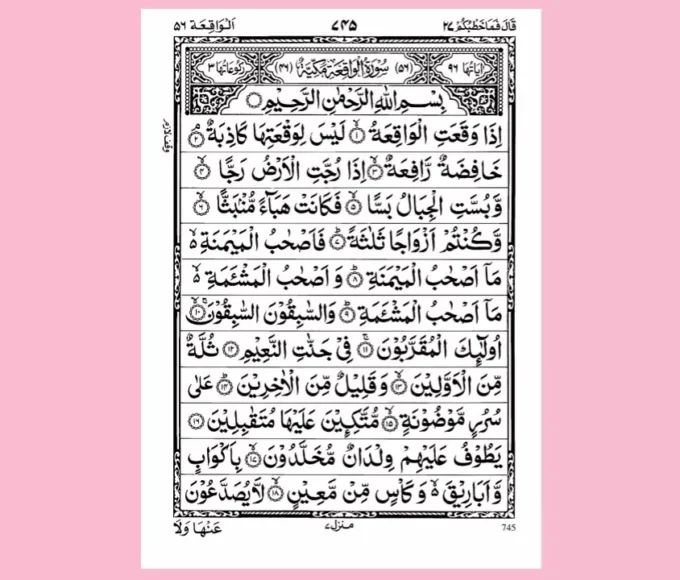 قَالَ فَمَا خَطْبُكُمْ ٢٧ ٧٤٥ اَلْوَاقِعَة ٥٦
اٰيَاتُهَا ٩٦ (٥٦) سُوْرَةُ الْوَاقِعَةِ مَكِّيَّةٌ (٤٦) رُكُوْعَاتُهَا ٣
بِسْمِ اللّٰهِ الرَّحْمٰنِ الرَّحِيْمِ
اِذَا وَقَعَتِ الْوَاقِعَةُ ۙ﴿١﴾ لَيْسَ لِوَقْعَتِهَا كَاذِبَةٌ ۘ﴿٢﴾
وقف لازم
خَافِضَةٌ رَّافِعَةٌ ۙ﴿٣﴾ اِذَا رُجَّتِ الْاَرْضُ رَجًّا ۙ﴿٤﴾
وَّبُسَّتِ الْجِبَالُ بَسًّا ۙ﴿٥﴾ فَكَانَتْ هَبَآءً مُّنْۢبَثًّا ۙ﴿٦﴾
وَّكُنْتُمْ اَزْوَاجًا ثَلٰثَةً ؕ﴿٧﴾ فَاَصْحٰبُ الْمَيْمَنَةِ ۙ۬
مَاۤ اَصْحٰبُ الْمَيْمَنَةِ ؕ﴿٨﴾ وَ اَصْحٰبُ الْمَشْـَٔمَةِ ۙ۬
مَاۤ اَصْحٰبُ الْمَشْـَٔمَةِ ؕ﴿٩﴾ وَالسّٰبِقُوْنَ السّٰبِقُوْنَ ۚۙ﴿١٠﴾
اُولٰٓئِكَ الْمُقَرَّبُوْنَ ۚ﴿١١﴾ فِيْ جَنّٰتِ النَّعِيْمِ ﴿١٢﴾ ثُلَّةٌ
مِّنَ الْاَوَّلِيْنَ ۙ﴿١٣﴾ وَ قَلِيْلٌ مِّنَ الْاٰخِرِيْنَ ؕ﴿١٤﴾ عَلٰى
سُرُرٍ مَّوْضُوْنَةٍ ۙ﴿١٥﴾ مُّتَّكِـِٕيْنَ عَلَيْهَا مُتَقٰبِلِيْنَ ﴿١٦﴾
يَطُوْفُ عَلَيْهِمْ وِلْدَانٌ مُّخَلَّدُوْنَ ۙ﴿١٧﴾ بِاَكْوَابٍ
وَّ اَبَارِيْقَ ۙ۬ وَ كَاْسٍ مِّنْ مَّعِيْنٍ ۙ﴿١٨﴾ لَّا يُصَدَّعُوْنَ
مَنْزِل ٧ عَنْهَا وَلَا
745